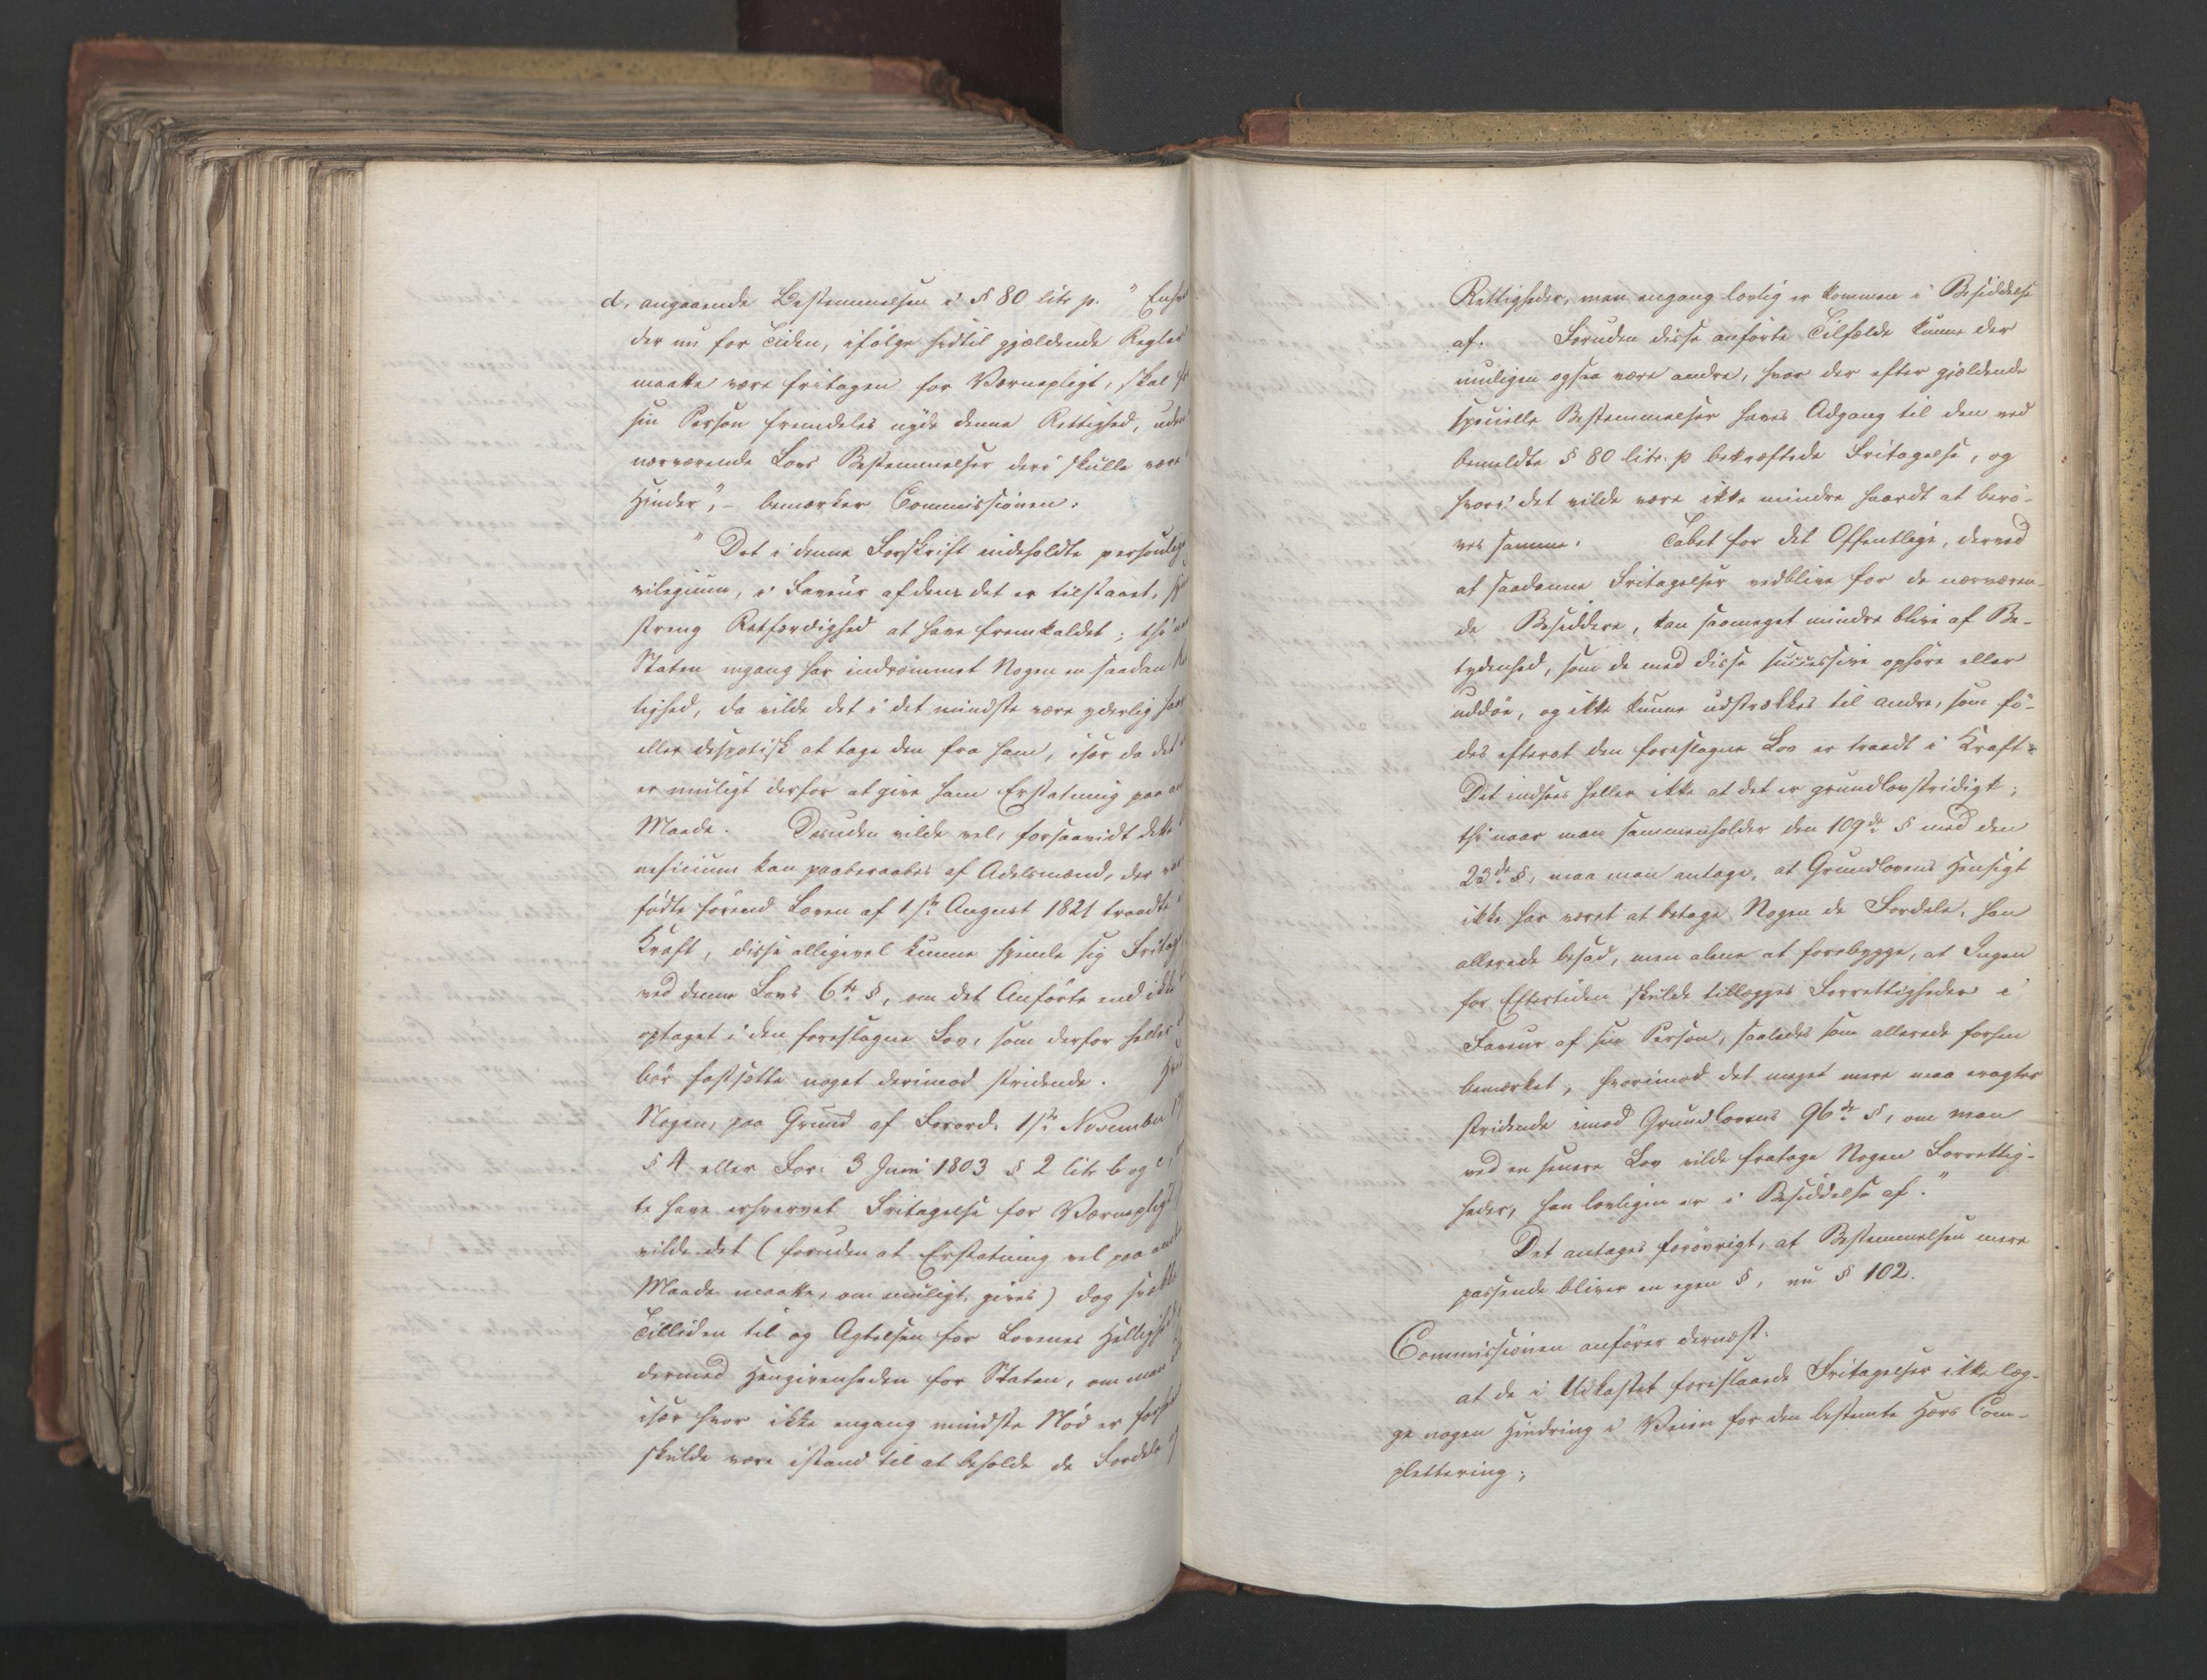 d, angaaende Bestemmelsen i § 80 litr p. "Enhver
der nu for Tiden, ifølge hidtil gjældende Regler
maatte være fritagen for Værnepligt, skal for
sin Person fremdeles nyde denne Rettighed, uden
nærværende Lovs Bestemmelser deri skulle være
Hinder", – bemærker Commissionen:
"Det i denne Forskrift indeholdte personlige
vilegium, i Faveur af dem det er tilstaaet,
streng Retfærdighed at have fremkaldet; thi naar
Staten engang har indrømmet Nogen en saadan
tighed, da vilde det i det mindste være yderlig haardt
eller despotisk at tage den fra ham, især da det
er muligt derfor at give ham Erstatning paa anden
Maade. Desuden vilde vel, forsaavidt dette
neficium kan paaberaabes af Adelsmænd, der vare
fødte førend Loven af 1ste August 1821 traadte i
Kraft, disse alligevel kunne hjemle sig Fritagelse
ved denne Lovs 6te §, om det Anførte end ikke
optaget i den foreslagne Lov, som derfor heller
bør fastsætte noget derimod stridende.
Nogen, paa Grund af Forord. 1ste November
§ 4 eller For: 3 Juni 1803 § 2 litr b og c,
te have erhvervet Fritagelse for Værnepligt
vilde det (foruden at Erstatning vel paa anden
Maade maatte, om muligt, gives) dog svække
Tilliden til og Agtelsen for Lovenes Hellighed
dermed Hengivenheden for Staten, om man
især hvor ikke engang mindste Nød er
skulde være istand til at beholde de Fordele
Rettigheder, man engang lovlig er kommen i Besiddelse
af. Foruden disse anførte Tilfælde kunne der
muligen ogsaa være andre, hvor der efter gjældende
specielle Bestemmelser haves Adgang til den ved
bemeldte § 80 litr. p bekræftede Fritagelse, og
hvori det vilde være ikke mindre haardt at berø-
ves samme. Tabet for det Offentlige, derved
at saadanne Fritagelser vedblive for de nærværen-
de Besiddere, kan saameget mindre blive af Be-
tydenhed, som de med disse successive ophøre eller
uddøe, og ikke kunne udstrækkes til andre, som fø-
des efterat den foreslagne Lov er traadt i Kraft.
Det indsees heller ikke at det er grundlovstridigt;
thi naar man sammenholder den 109de § med den
23de §, maa man antage, at Grundlovens Hensigt
ikke har været at betage Nogen de Fordele, han
allerede besad, men alene at forebygge, at Ingen
for Eftertiden skulde tillægges Forrettigheder i
Faveur af sin Person, saaledes som allerede forhen
bemærket, hvorimod det meget mere maa eragtes
stridende imod Grundlovens 96de §, om man
ved en senere Lov vilde fratage Nogen Forrettig-
heder, han lovligen er i Besiddelse af."
Det antages forøvrigt, at Bestemmelsen mere
passende bliver en egen §, nu § 102.
Commissionen anfører dernæst:
at de i Udkastet foreslaaede Fritagelser ikke læg-
ge nogen Hindring i Veien for den bestemte Hærs Com-
plettering;